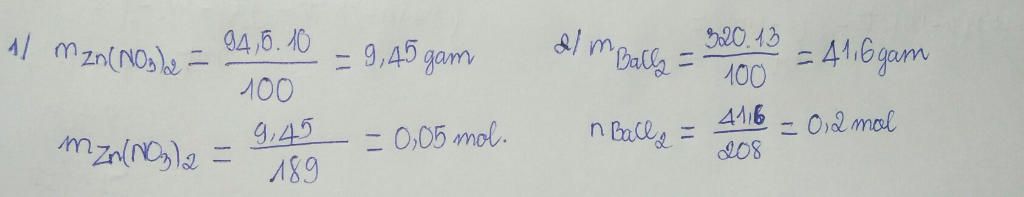 1/ mZn(NO3)2 = 94,5.10/100 = 9,45 gam
mZn(NO3)2 = 9,45/189 = 0,05 mol.
2/ mBaCl2 = 320.13/100 = 41,6 gam
nBaCl2 = 41,6/208 = 0,2 mol